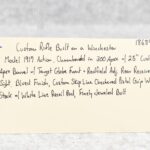 18685
Custom Rifle Built on a Winchester
Model 1919 Action, Chambered in 300 Apex w/ 25" Custom
Apex Barrel w/ Target Globe Front - Redfield Adj. Rear Receiver
Sight, Blued Finish, Custom Skip Line Checkered Pistol Grip
Stock w/ White Line Recoil Pad, Finely Jeweled Bolt